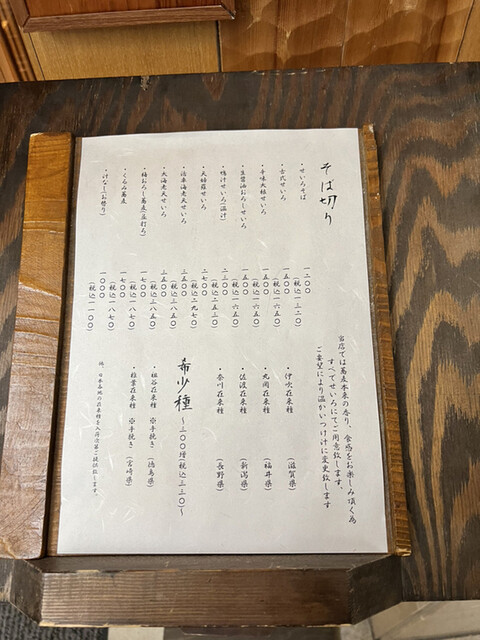 そば切り
・せいろそば 一二〇〇 (税込一三二〇)
・古式せいろ 一五〇〇 (税込一六五〇)
・辛味大根せいろ 一五〇〇 (税込一六五〇)
・生醤油おろしせいろ 一五〇〇 (税込一六五〇)
・鴨汁せいろ(温汁) 二三〇〇 (税込二五三〇)
・天婦羅せいろ 二七〇〇 (税込二九七〇)
・活車海老天せいろ 三五〇〇 (税込三八五〇)
・大海老天せいろ 三五〇〇 (税込三八五〇)
・桶おろし蕎麦(広打ち) 一七〇〇 (税込一八七〇)
・くるみ蕎麦 一七〇〇 (税込一八七〇)
・けなし(お替り) 一〇〇〇 (税込一一〇〇)
当店では蕎麦本来の香り、食感をお楽しみ頂く為
すべてせいろにてご用意致します。
ご要望により温かいつけ汁に変更致します
・伊吹在来種 (滋賀県)
・丸岡在来種 (福井県)
・佐渡在来種 (新潟県)
・奈川在来種 (長野県)
希少種 〜三〇〇増税込三三〇〜
・祖谷在来種 ※手挽き (徳島県)
・椎葉在来種 ※手挽き (宮崎県)
尚、日本各地の在来種を入荷次第ご提供致します。